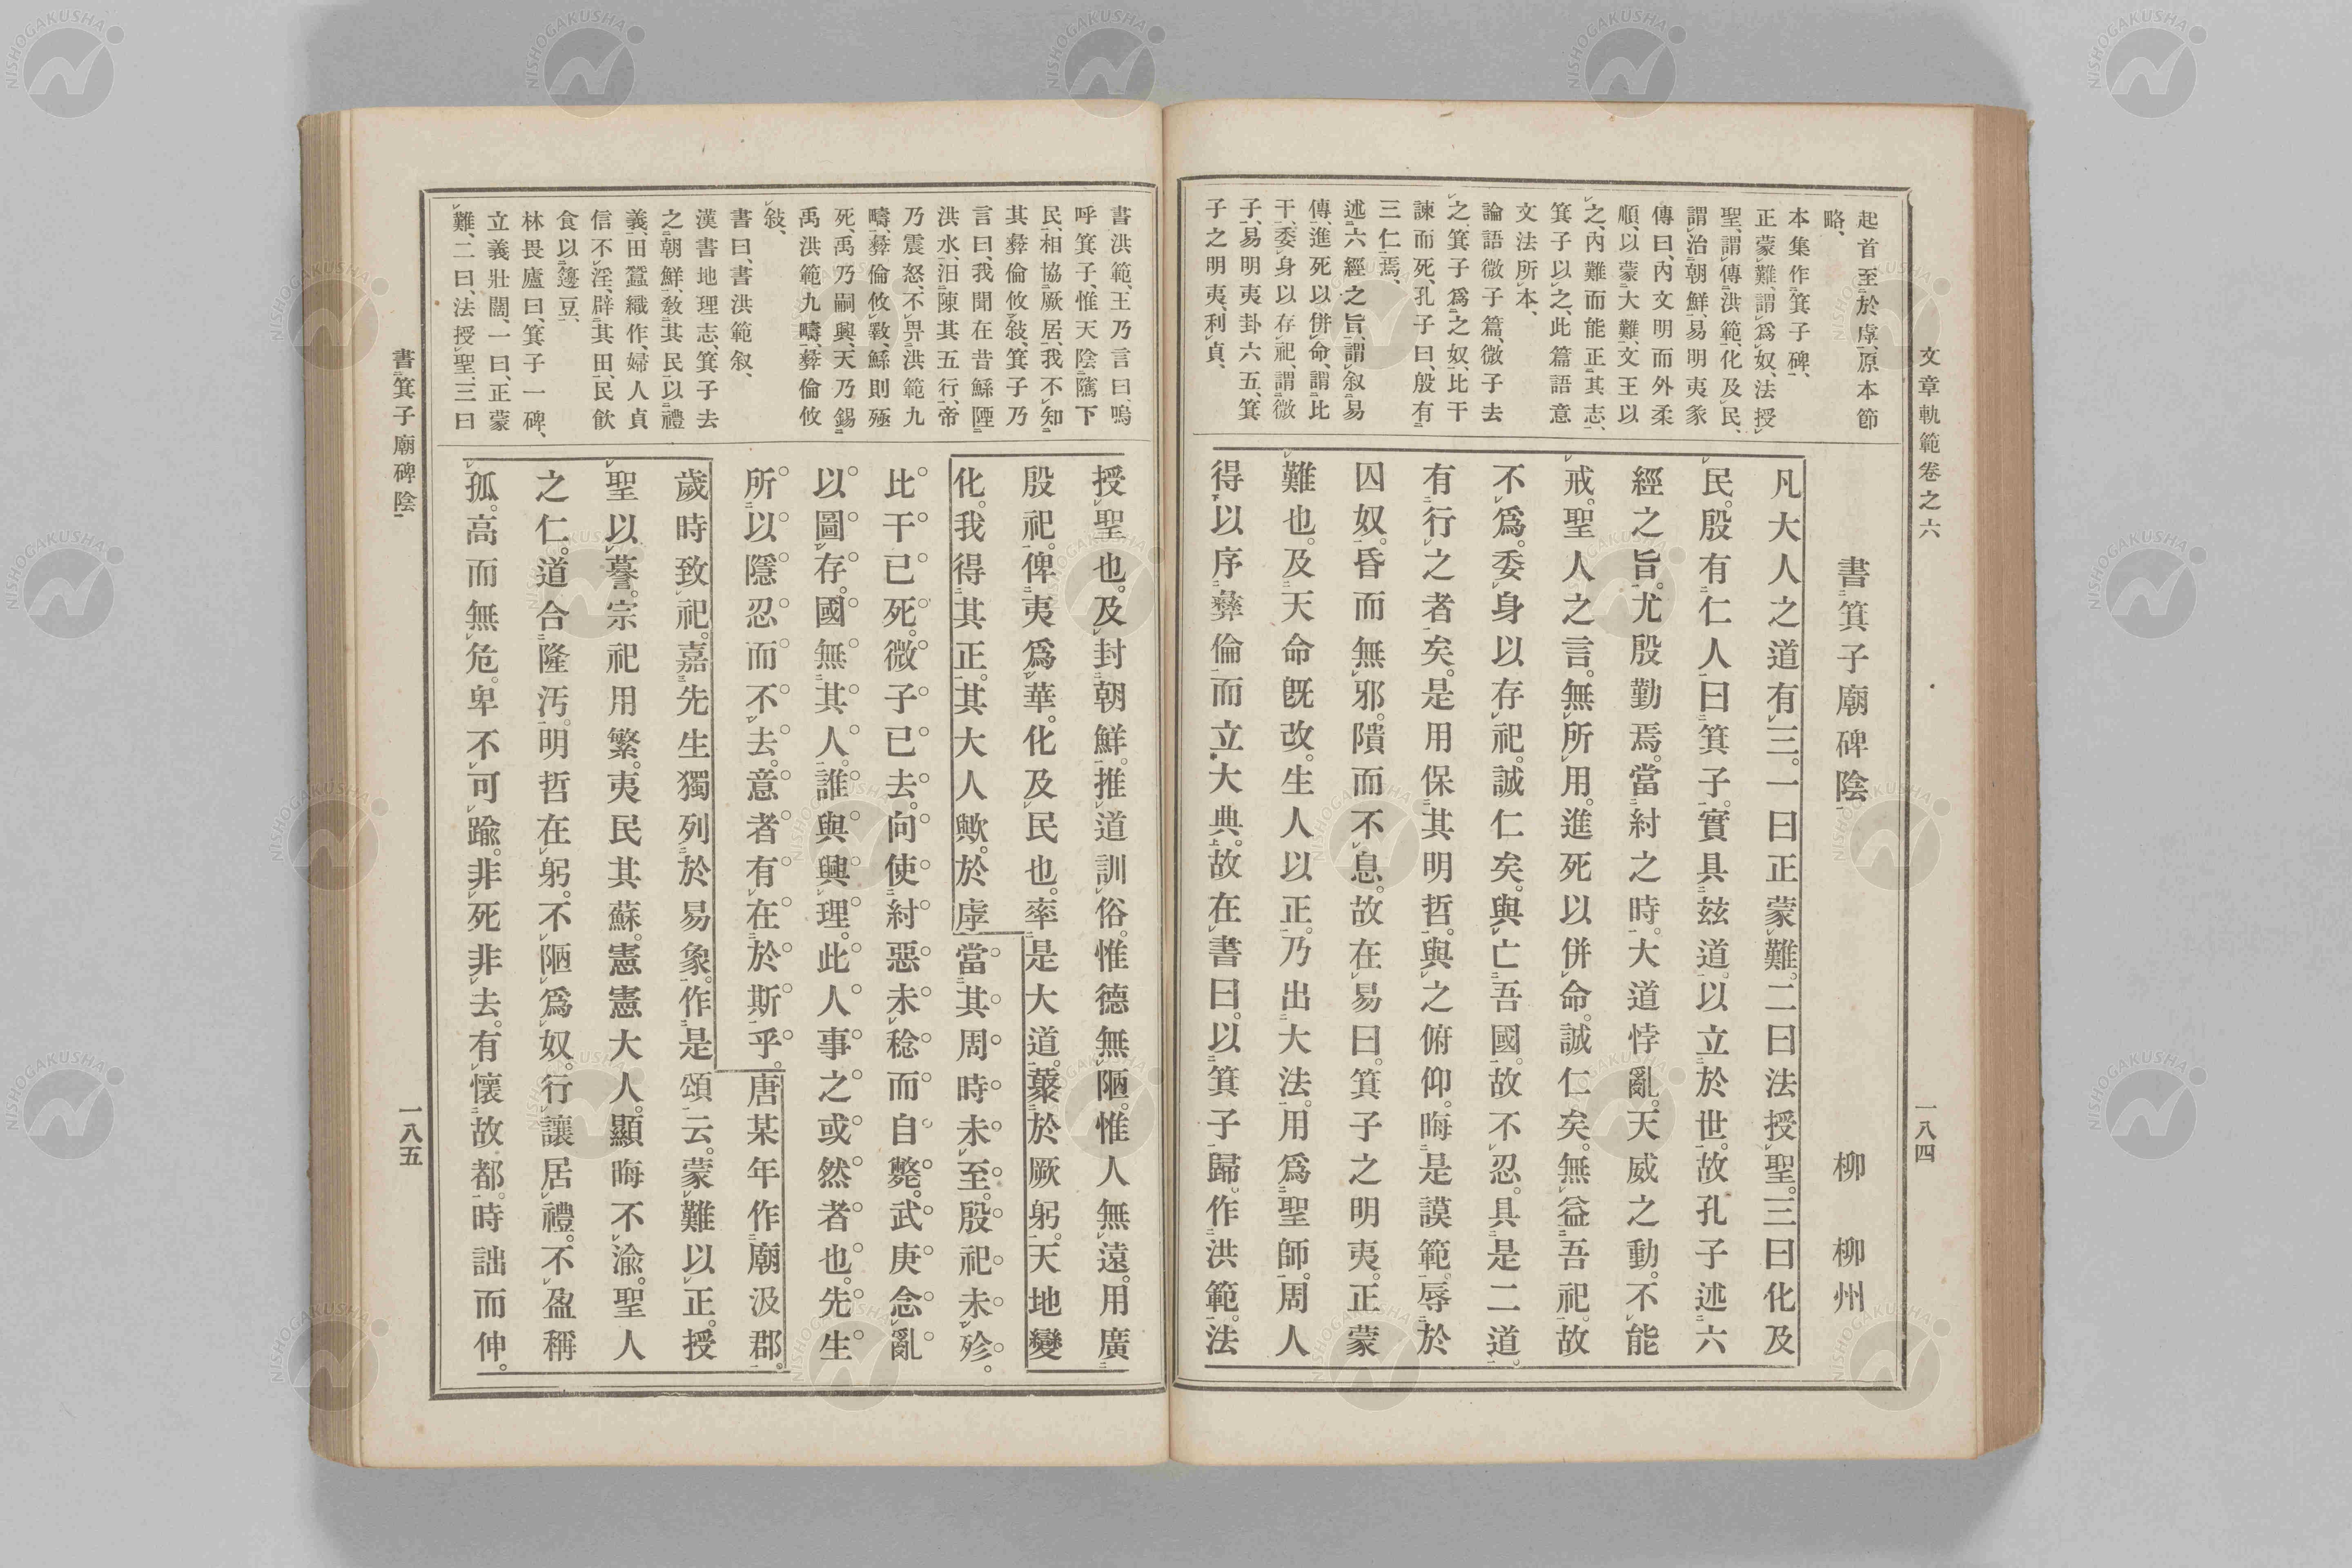 文章軌範卷之六
一八四
起首至於虖、原本節
略、
本集作箕子碑、
正蒙難、謂爲奴、法授
聖、謂傳洪範、化及民、
謂治朝鮮、易明夷彖
傳曰、內文明而外柔
順、以蒙大難、文王以
之、內難而能正其志、
箕子以之、此篇語意
文法所本、
論語微子篇、微子去
之、箕子爲之奴、比干
諫而死、孔子曰、殷有
三仁焉、
述六經之旨、謂叙易
傳、進死以併命、謂比
干、委身以存祀、謂微
子、易明夷卦六五、箕
子之明夷、利貞、
書箕子廟碑陰
柳柳州
凡大人之道有三。一曰正蒙難。二曰法授聖。三曰化及
民。殷有仁人曰箕子。實具玆道。以立於世。故孔子述六
經之旨。尤殷勤焉。當紂之時。大道悖亂。天威之動。不能
戒。聖人之言。無所用。進死以併命。誠仁矣。無益吾祀。故
不爲。委身以存祀。誠仁矣。與亡吾國。故不忍。具是二道。
有行之者矣。是用保其明哲。與之俯仰。晦是謨範。辱於
囚奴。昏而無邪。隤而不息。故在易曰。箕子之明夷。正蒙
難也。及天命旣改。生人以正。乃出大法。用爲聖師。周人
得以序彝倫而立大典。故在書曰。以箕子歸。作洪範。法
書洪範、王乃言曰、嗚
呼箕子、惟天陰隲下
民、相協厥居、我不知
其彝倫攸敍、箕子乃
言曰、我聞在昔鯀陻
洪水、汨陳其五行、帝
乃震怒、不畀洪範九
疇、彝倫攸斁、鯀則殛
死、禹乃嗣興、天乃錫
禹洪範九疇、彝倫攸
敍、
書曰、書洪範叙、
漢書地理志、箕子去
之朝鮮、敎其民以禮
義、田蠶織作、婦人貞
信不淫、辟其田、民飮
食以籩豆、
林畏廬曰、箕子一碑、
立義壯闊、一曰、正蒙
難、二曰、法授聖、三曰
授聖也。及封朝鮮。推道訓俗。惟德無陋。惟人無遠。用廣
殷祀。俾夷爲華。化及民也。率是大道。藂於厥躬。天地變
化。我得其正。其大人歟。於虖當其周時未至。殷祀未殄。
比干已死。微子已去。向使紂惡未稔而自斃。武庚念亂
以圖存。國無其人。誰與興理。此人事之或然者也。先生
所以隱忍而不去。意者有在於斯乎。唐某年作廟汲郡。
歲時致祀。嘉先生獨列於易象。作是頌云。蒙難以正。授
聖以謩。宗祀用繁。夷民其蘇。憲憲大人。顯晦不渝。聖人
之仁。道合隆汚。明哲在躬。不陋爲奴。行讓居禮。不盈稱
孤。高而無危。卑不可踰。非死非去。有懷故都。時詘而伸。
書箕子廟碑陰
一八五